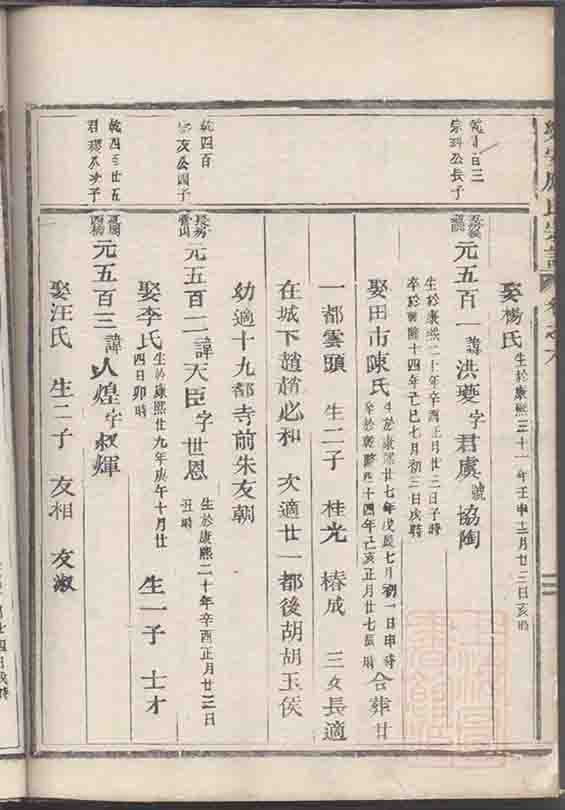 娶楊氏 生於康熙三十一年壬申十二月廿三日亥時
元五百一 諱洪夔 字君虞 號協陶
生於康熙二十年辛酉正月廿三日子時
卒於乾隆十四年己巳七月初三日戌時
娶田市陳氏 生於康熙廿七年戊辰七月初一日申時 卒於乾隆四十四年己亥正月廿七辰時 合葬廿
一都雲頭 生二子 桂光 椿成 三女長適
在城下趙趙必和 次適廿一都後胡胡玉侯
幼適十九都寺前朱友朝
乾四百
友公四子
長房
元五百二 諱天臣 字世恩 生於康熙二十年辛酉正月廿三日丑時
娶李氏 生於康熙廿九年庚午十月廿四日卯時 生一子 士才
乾四百廿五
君穆公次子
元五百三 諱人煌 字叔輝
娶汪氏 生二子 友相 友淑